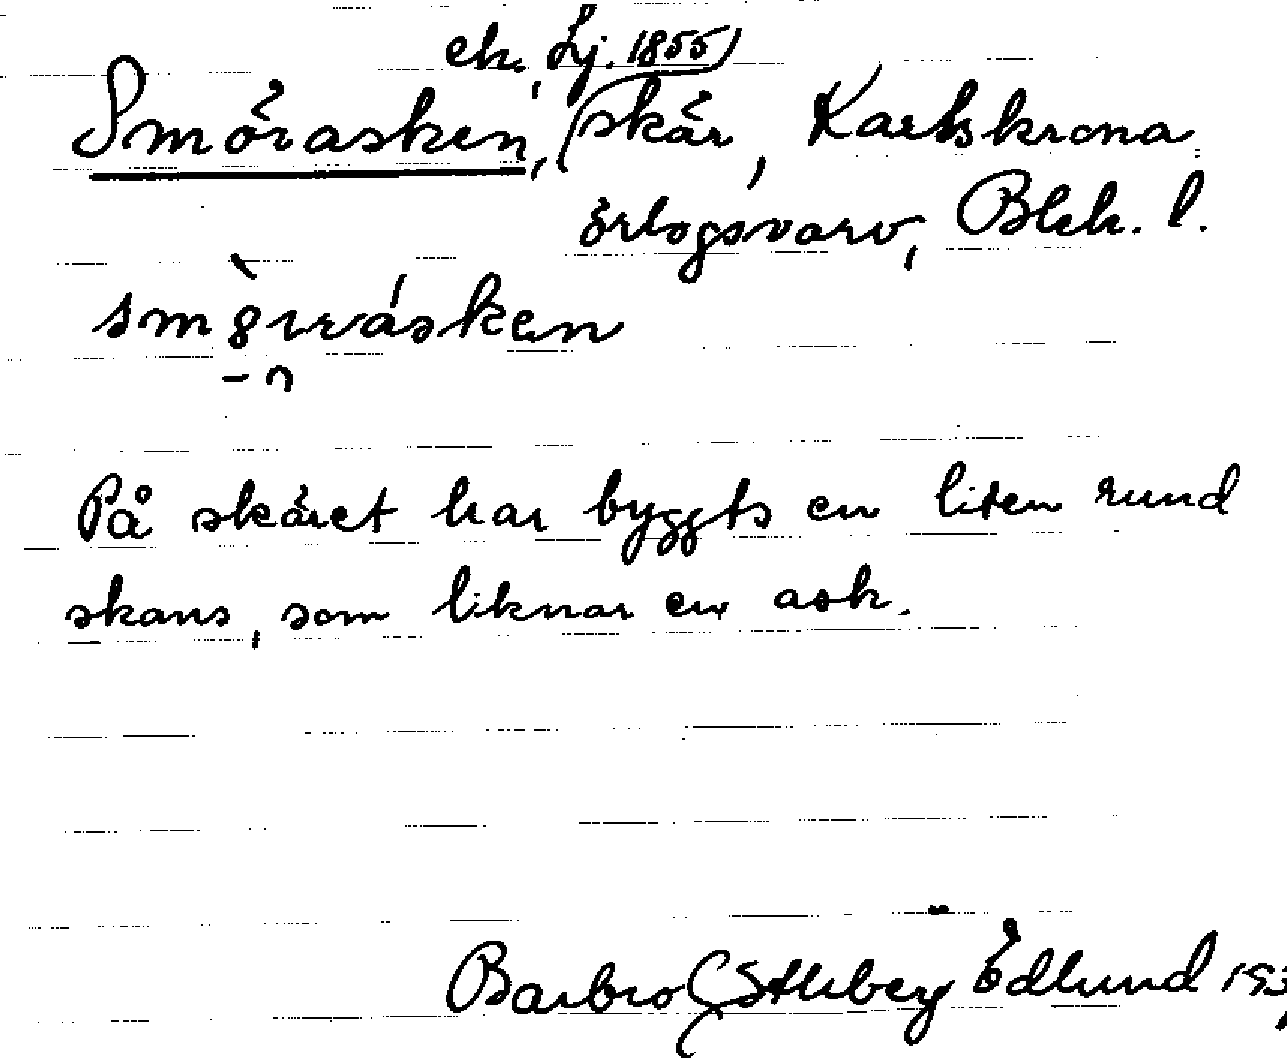 ek. Lj. 1855
Smörasken, skär, Karlskrona
örlogsvarv, Blek. l.
smörasken
På skäret har byggts en liten rund
skans, som liknar en ask.
Barbro Edlund